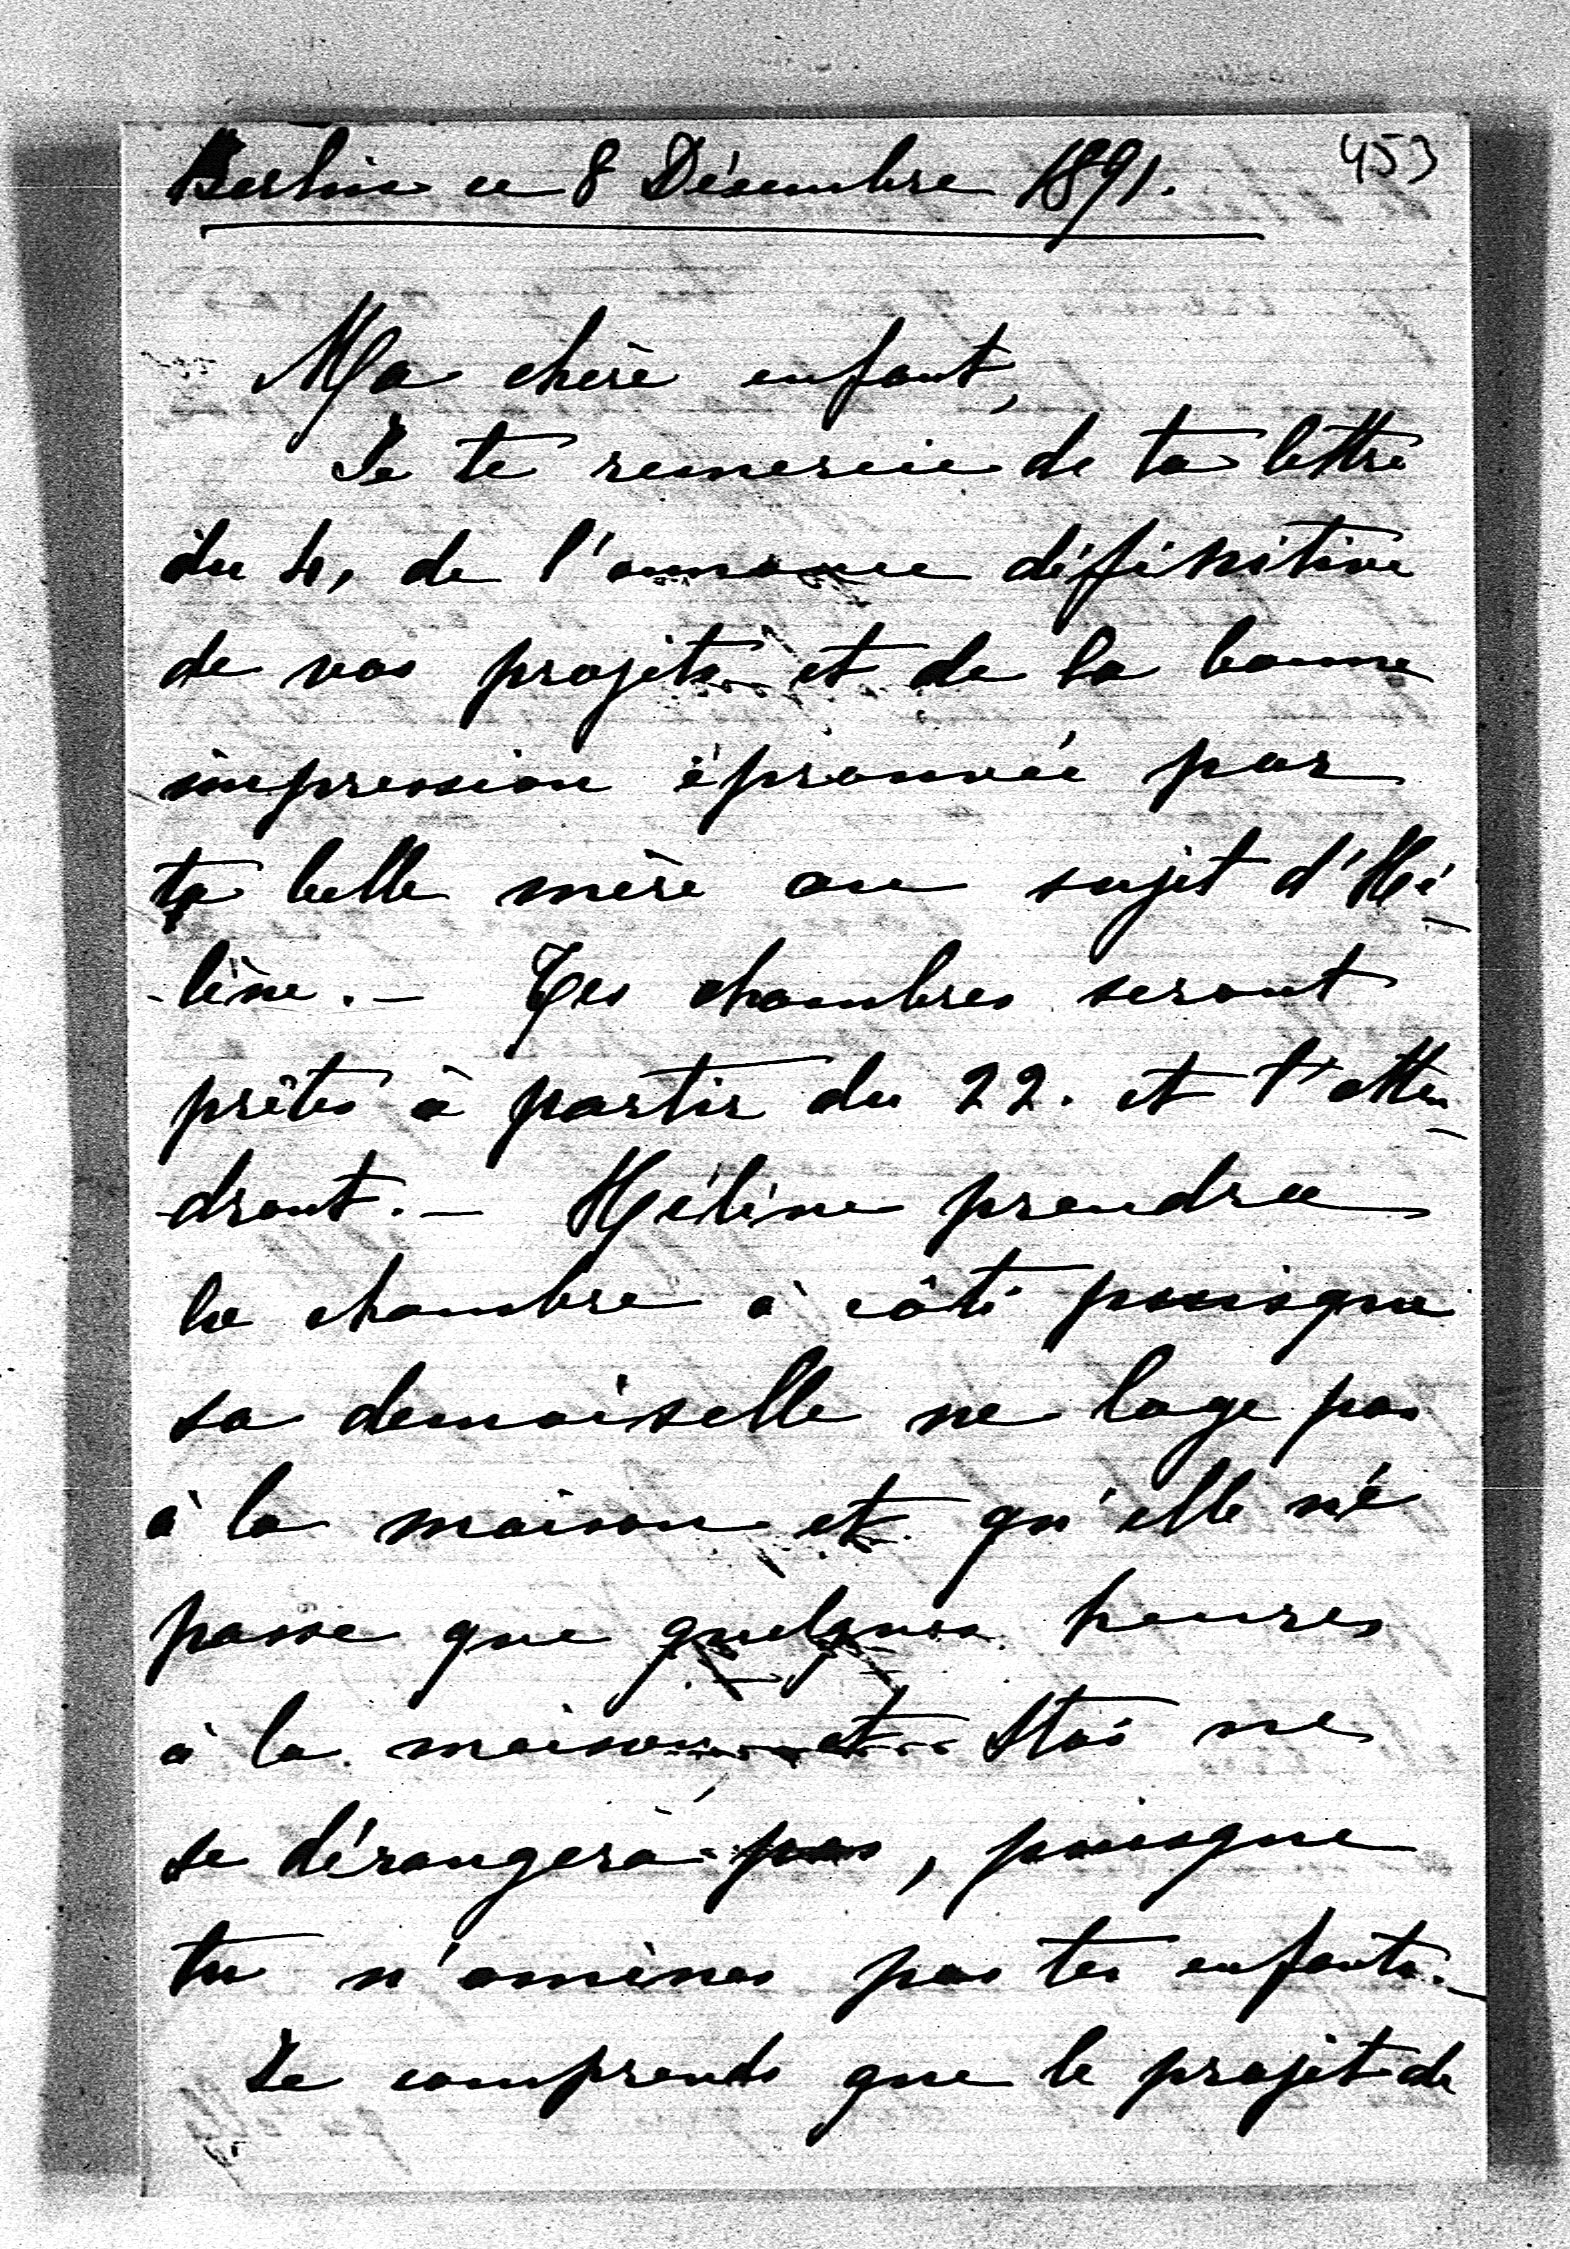 453
Berlin ce 8 Décembre 1891.
Ma chère enfant,
Je te remercie de ta lettre
du 4, de l'annonce définitive
de vos projets et de la bonne
impression éprouvée par
ta belle mère au sujet d'Hé-
-lène. — Tes chambres seront
prêtes à partir du 22. et t'atten-
-dront. — Hélène prendra
la chambre à côté puisque
sa demoiselle ne loge pas
à la maison et qu'elle ne
passe que quelques heures
à la maison et Stas ne
se dérangera pas, puisque
tu n'amènes pas tes enfants. —
Je comprends que le projet de